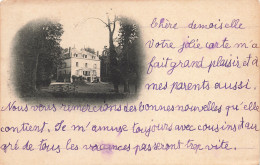 Chère demoiselle
Votre jolie carte m'a
fait grand plaisir et à
mes parents aussi.
Nous vous remercions des bonnes nouvelles qu'elle
contient. Je m'amuse toujours avec cousins et au
gré de tous les vacances passeront trop vite.